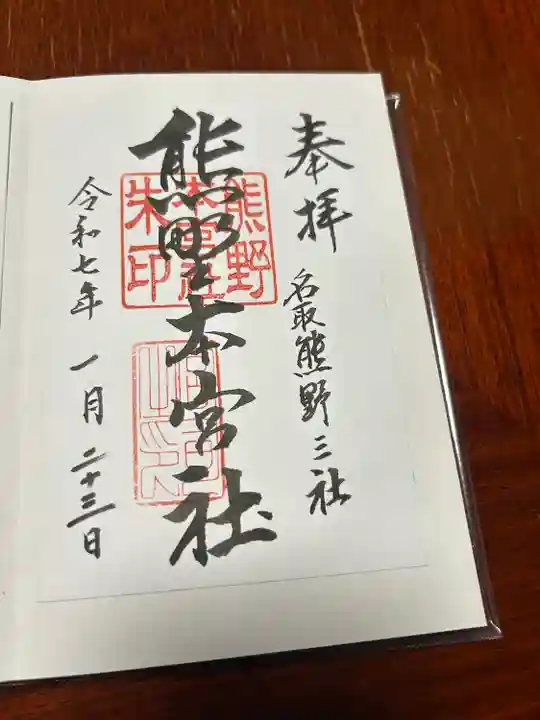 奉拝
名取熊野三社
熊野本宮社
熊野
本宮社
朱印
令和七年 一月二十三日